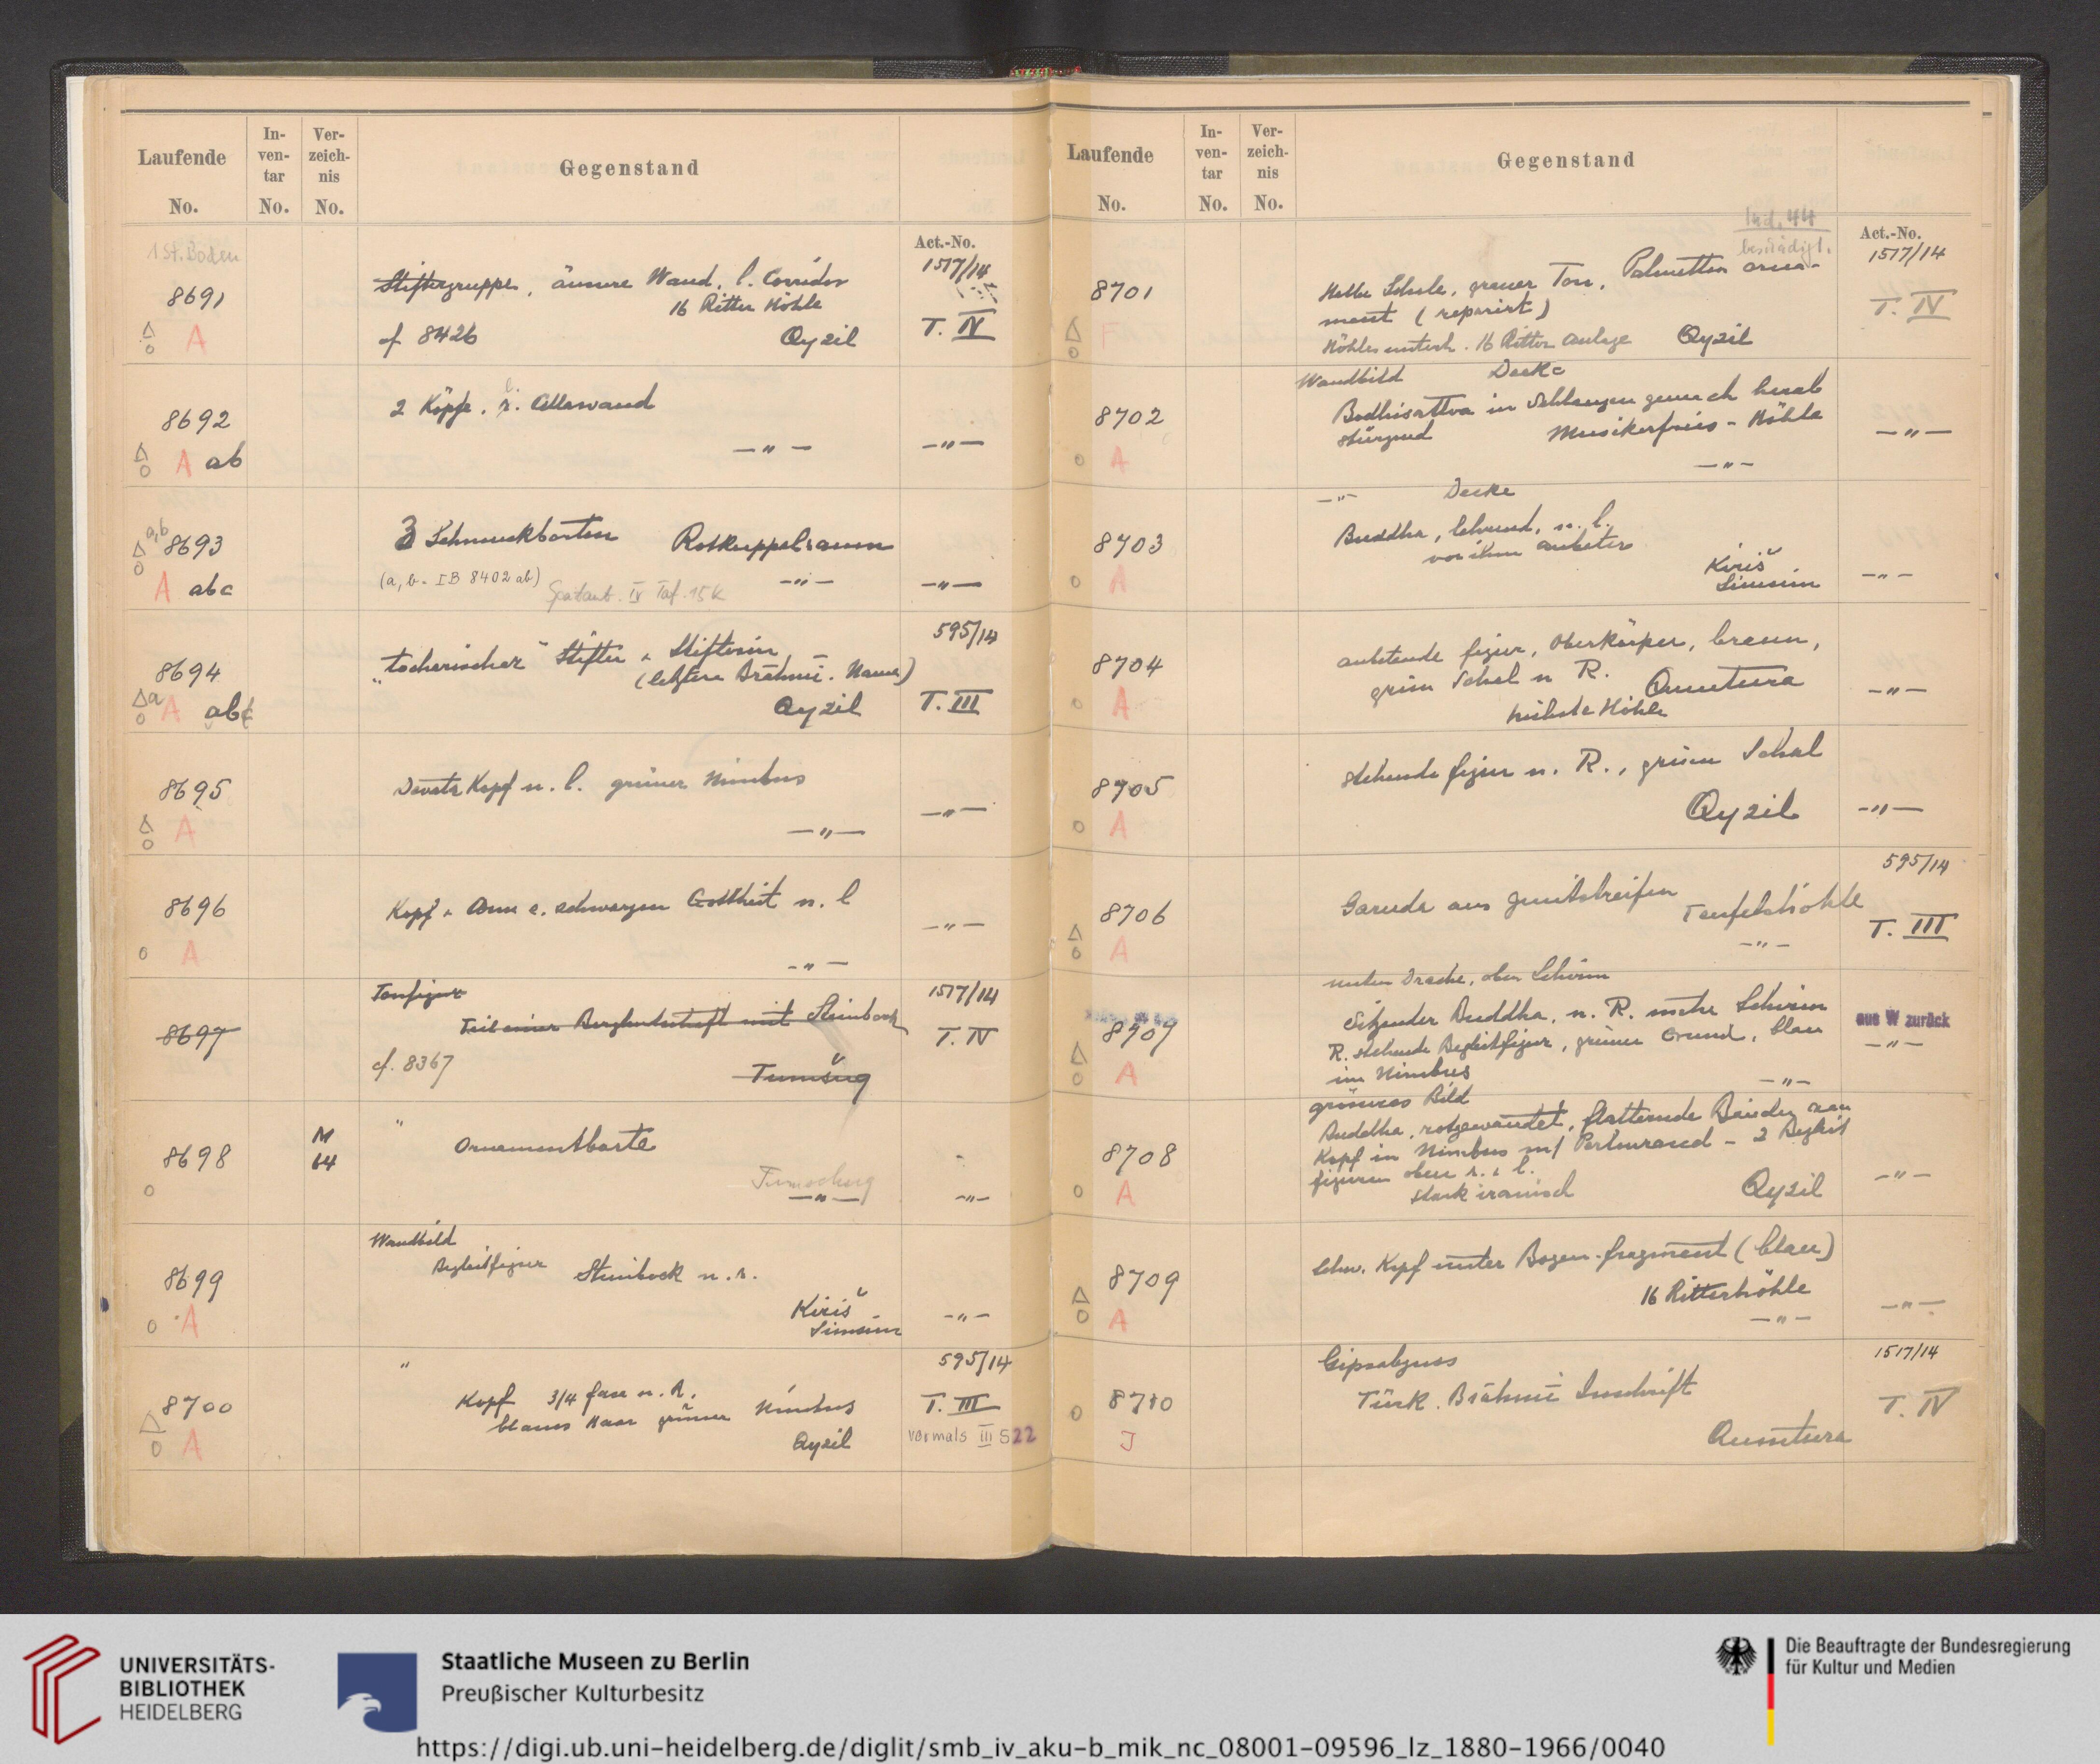 Laufende
No.
In-
ven-
tar
No.
Ver-
zeich-
nis
No.
Gegenstand
Act.-No.
1 St. Boden
8691
A
Stiftergruppe, äussere Wand, l. Corridor
16 Ritter Höhle
cf 8426 Qyzil
1517/14
T. IV
8692
A ab
2 Köpfe. l. r.
— " —
— " —
a,b
8693
A abc
3 Schmuckborten Rotkuppelraum
(a, b = IB 8402 ab) — " —
Spätant. IV Taf. 15 k
— " —
8694
a A abc
"tocharischer" Stifter u. Stifterin
(letztere Brāhmī. Name)
Qyzil
595/14
T. III
8695
A
Devatā Kopf n. l. grüner Nimbus
— " —
— " —
8696
A
Kopf u. Arm e. schwarzen Gottheit n. l
— " —
— " —
8697
Tonfigur
Teil einer Berglandschaft mit Steinbock
cf. 8367
Tumšuq
1517/14
T. IV
8698
M
64
"
Ornamentborte
Tumschuq
— " —
— " —
8699
A
Wandbild
Begleitfigur Steinbock n. r.
Kiriš
Simsim
— " —
8700
A
"
Kopf 3/4 face n. R.
blaues Haar grüner Nimbus
Qyzil
595/14
T. III
vormals III 522
Laufende
No.
In-
ven-
tar
No.
Ver-
zeich-
nis
No.
Gegenstand
Act.-No.
Ind. 44
beschädigt.
8701
F
Halbe Schale, grauer Ton, Palmetten orna-
ment (reparirt)
Höhle unterh. 16 Ritter Anlage Qyzil
1517/14
T. IV
8702
A
Wandbild Decke
Bodhisattva in Schlangen herab
stürzend Musikerfries - Höhle
— " —
— " —
8703
A
— " — Decke
Buddha, lehrend, n. l.
vor ihm Anbeter
Kiriš
Simsim
— " —
8704
A
anbetende Figur, Oberkörper, braun,
grün Schal n R. Qumtura
Höhle
— " —
8705
A
stehende Figur n. R., grün Schal
Qyzil
— " —
8706
A
Garuda aus Teufelshöhle
— " —
595/14
T. III
8707
A
unten Drache, oben Schirm
Sitzender Buddha, n. R. Schirm
R. stehende Begleitfigur, grüner Grund, blau
im Nimbus
— " —
aus W zurück
— " —
8708
A
grösseres Bild
Buddha, rotgewandet, flatternde Bänder am
Kopf in Nimbus m/ Perlenrand - 2 Begleit
figuren oben r. u. l.
stark iranisch Qyzil
— " —
8709
A
Schw. Kopf unter Bogen-fragment (blau)
16 Ritterhöhle
— " —
— " —
8710
J
Gipsabguss
Türk. Brāhmī Inschrift
Qumtura
1517/14
T. IV
UNIVERSITÄTS-
BIBLIOTHEK
HEIDELBERG
Staatliche Museen zu Berlin
Preußischer Kulturbesitz
Die Beauftragte der Bundesregierung
für Kultur und Medien
https://digi.ub.uni-heidelberg.de/diglit/smb_iv_aku-b_mik_nc_08001-09596_lz_1880-1966/0040